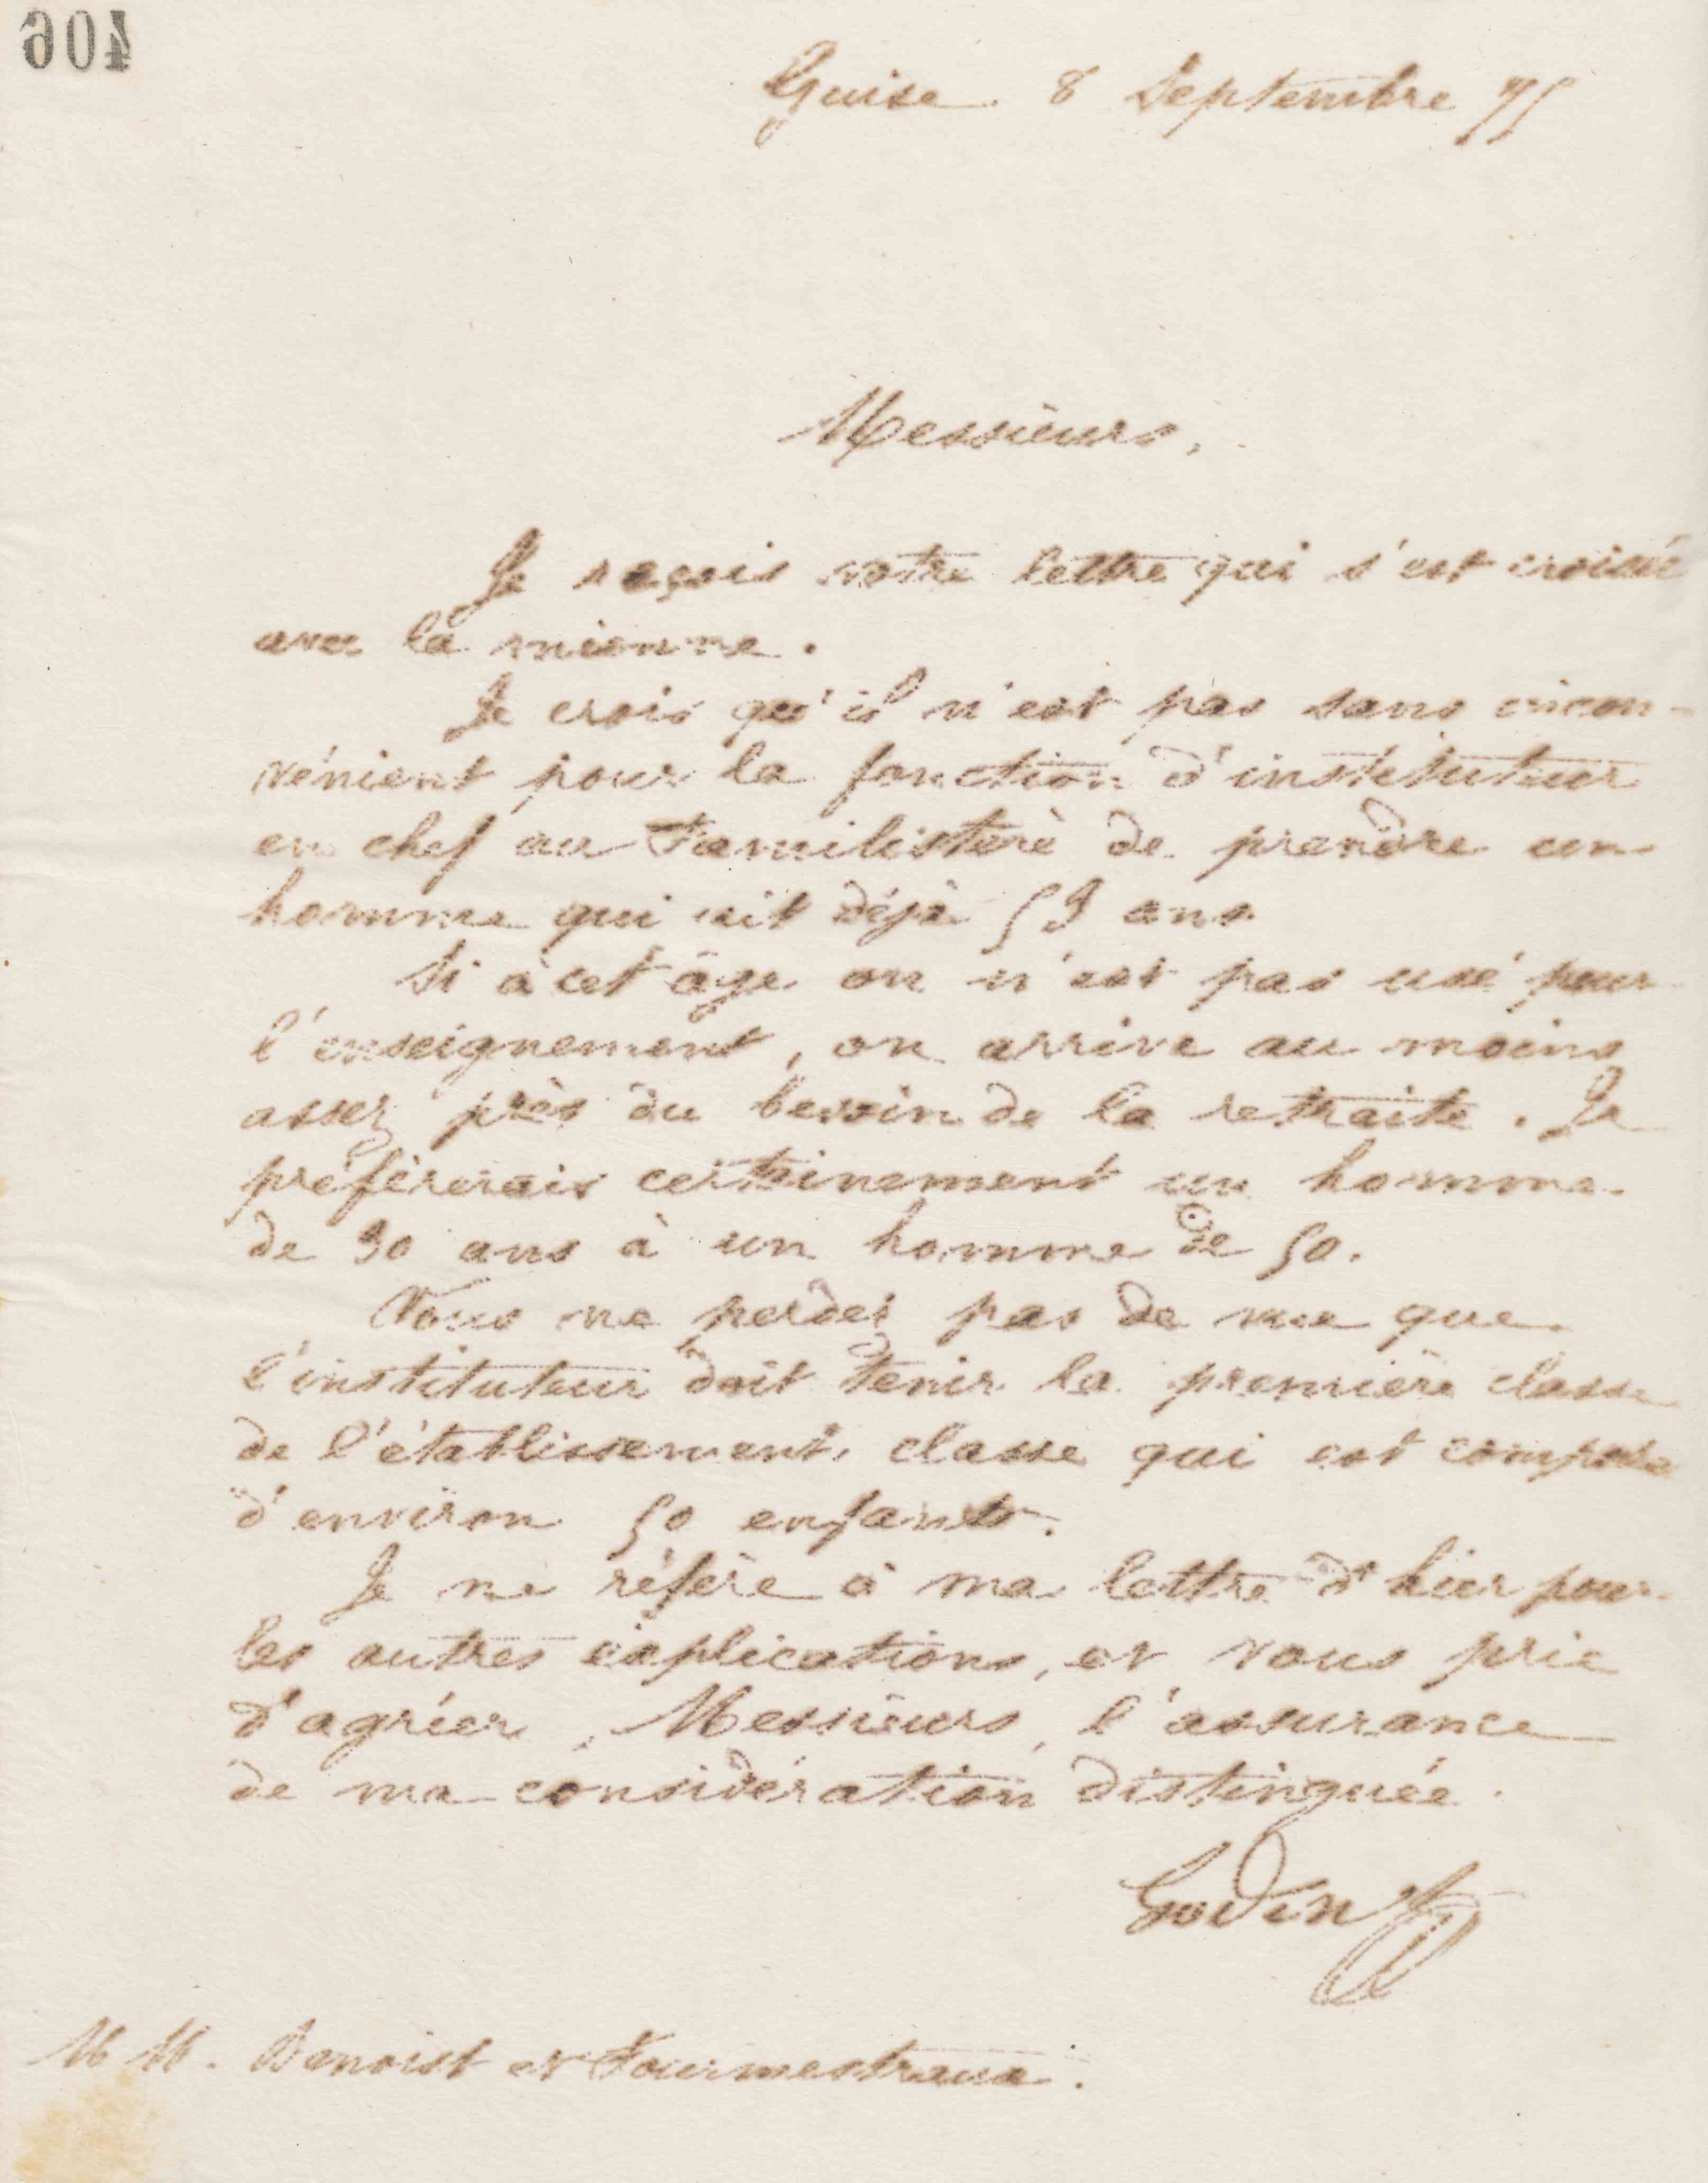 406
Guise 8 Septembre 75
Messieurs,
Je reçois votre lettre qui s'est croisée
avec la mienne.
Je crois qu'il n'est pas sans incon-
vénient pour la fonction d'instituteur
en chef au Familistère de prendre un
homme qui ait déjà 53 ans
Si à cet âge on n'est pas usé pour
l'enseignement, on arrive au moins
assez près du besoin de la retraite. Je
préfèrerais certainement un homme
de 30 ans à un homme de 50.
Vous ne perdez pas de vue que
l'instituteur doit tenir la première classe
de l'établissement, classe qui est composée
d'environ 50 enfants.
Je me réfère à ma lettre d'hier pour
les autres explications, et vous prie
d'agréer, Messieurs, l'assurance
de ma considération distinguée.
Godin
MM. Benoist et Fourmestraux.